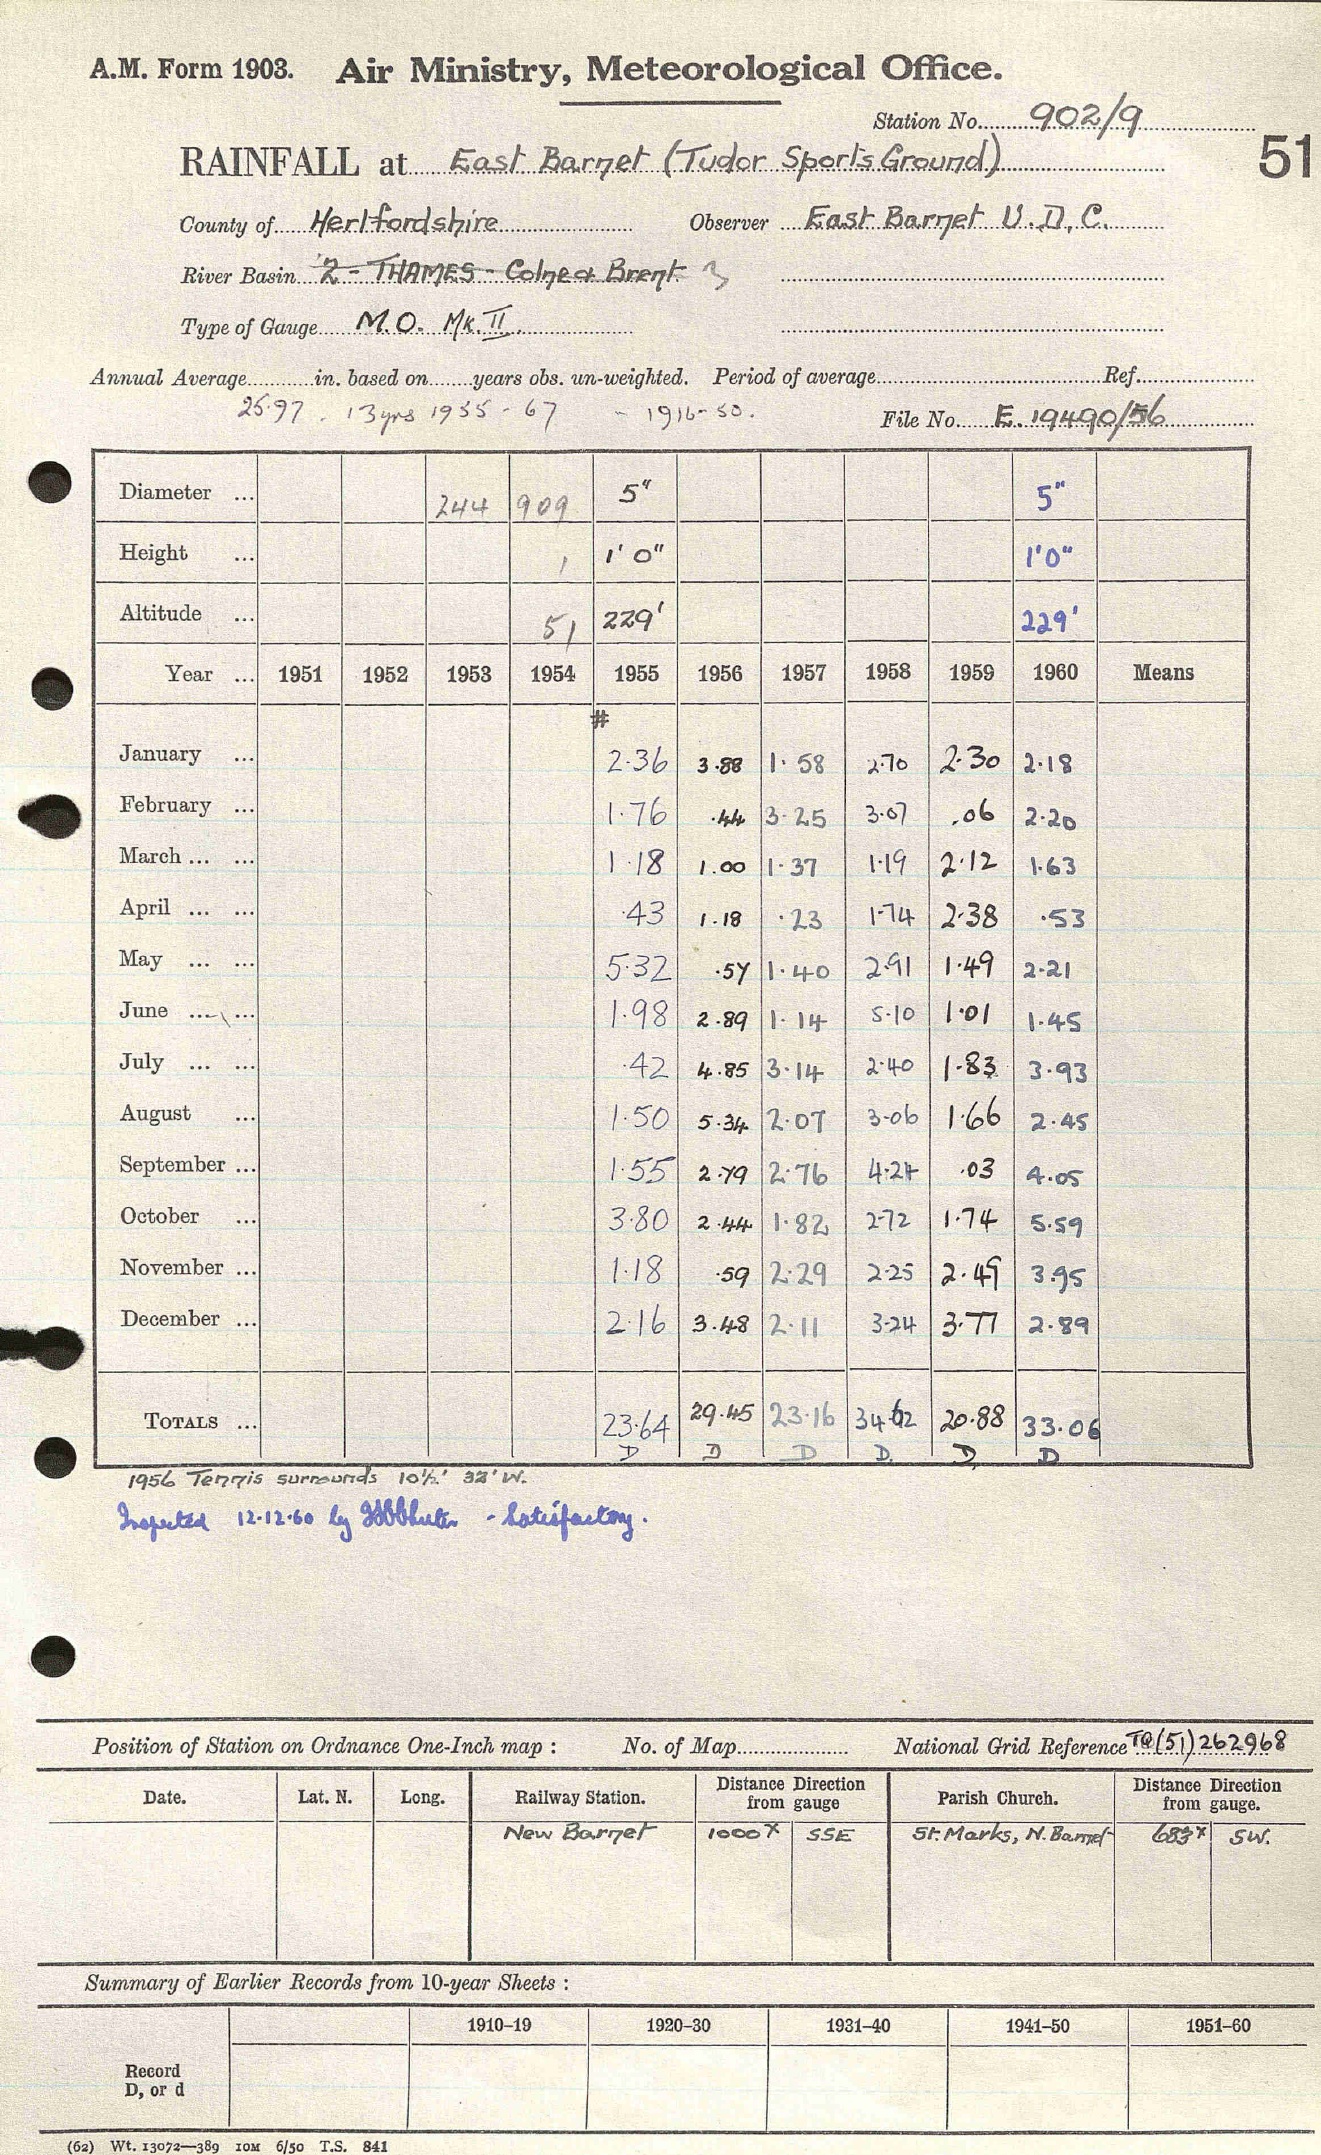 A.M. Form 1903. Air Ministry, Meteorological Office.
Station No. 902/9
51
RAINFALL at East Barnet (Tudor Sports Ground)
County of Hertfordshire Observer East Barnet U.D.C.
River Basin 2 - THAMES - Colne & Brent 3
Type of Gauge M.O. Mk. II.
Annual Average in. based on years obs. un-weighted. Period of average Ref.
25.97 . 13 yrs 1955 - 67 - 1916-50.
File No. E. 19490/56
Diameter ... 244 909 5" 5"
Height ... 1 1' 0" 1'0"
Altitude ... 51 229' 229'
Year ... 1951 1952 1953 1954 1955 1956 1957 1958 1959 1960 Means
#
January ... 2.36 3.88 1.58 2.70 2.30 2.18
February ... 1.76 .44 3.25 3.07 .06 2.20
March ... ... 1.18 1.00 1.37 1.19 2.12 1.63
April ... ... .43 1.18 .23 1.74 2.38 .53
May ... ... 5.32 .57 1.40 2.91 1.49 2.21
June ... ... 1.98 2.89 1.14 5.10 1.01 1.45
July ... ... .42 4.85 3.14 2.40 1.83 3.93
August ... 1.50 5.34 2.07 3.06 1.66 2.45
September ... 1.55 2.79 2.76 4.24 .03 4.05
October ... 3.80 2.44 1.82 2.72 1.74 5.59
November ... 1.18 .59 2.29 2.25 2.49 3.95
December ... 2.16 3.48 2.11 3.24 3.77 2.89
TOTALS ... 23.64 29.45 23.16 34.62 20.88 33.06
D D D D. D, D
1956 Tennis surrounds 10½' 32' W.
Inspected 12.12.60 by - Satisfactory.
Position of Station on Ordnance One-Inch map : No. of Map National Grid Reference TQ(51)262968
Date. Lat. N. Long. Railway Station. Distance Direction from gauge Parish Church. Distance Direction from gauge.
New Barnet 1000x SSE St. Marks, N. Barnet 683x SW.
Summary of Earlier Records from 10-year Sheets :
1910–19 1920–30 1931–40 1941–50 1951–60
Record
D, or d
(62) Wt. 13072—389 10M 6/50 T.S. 841